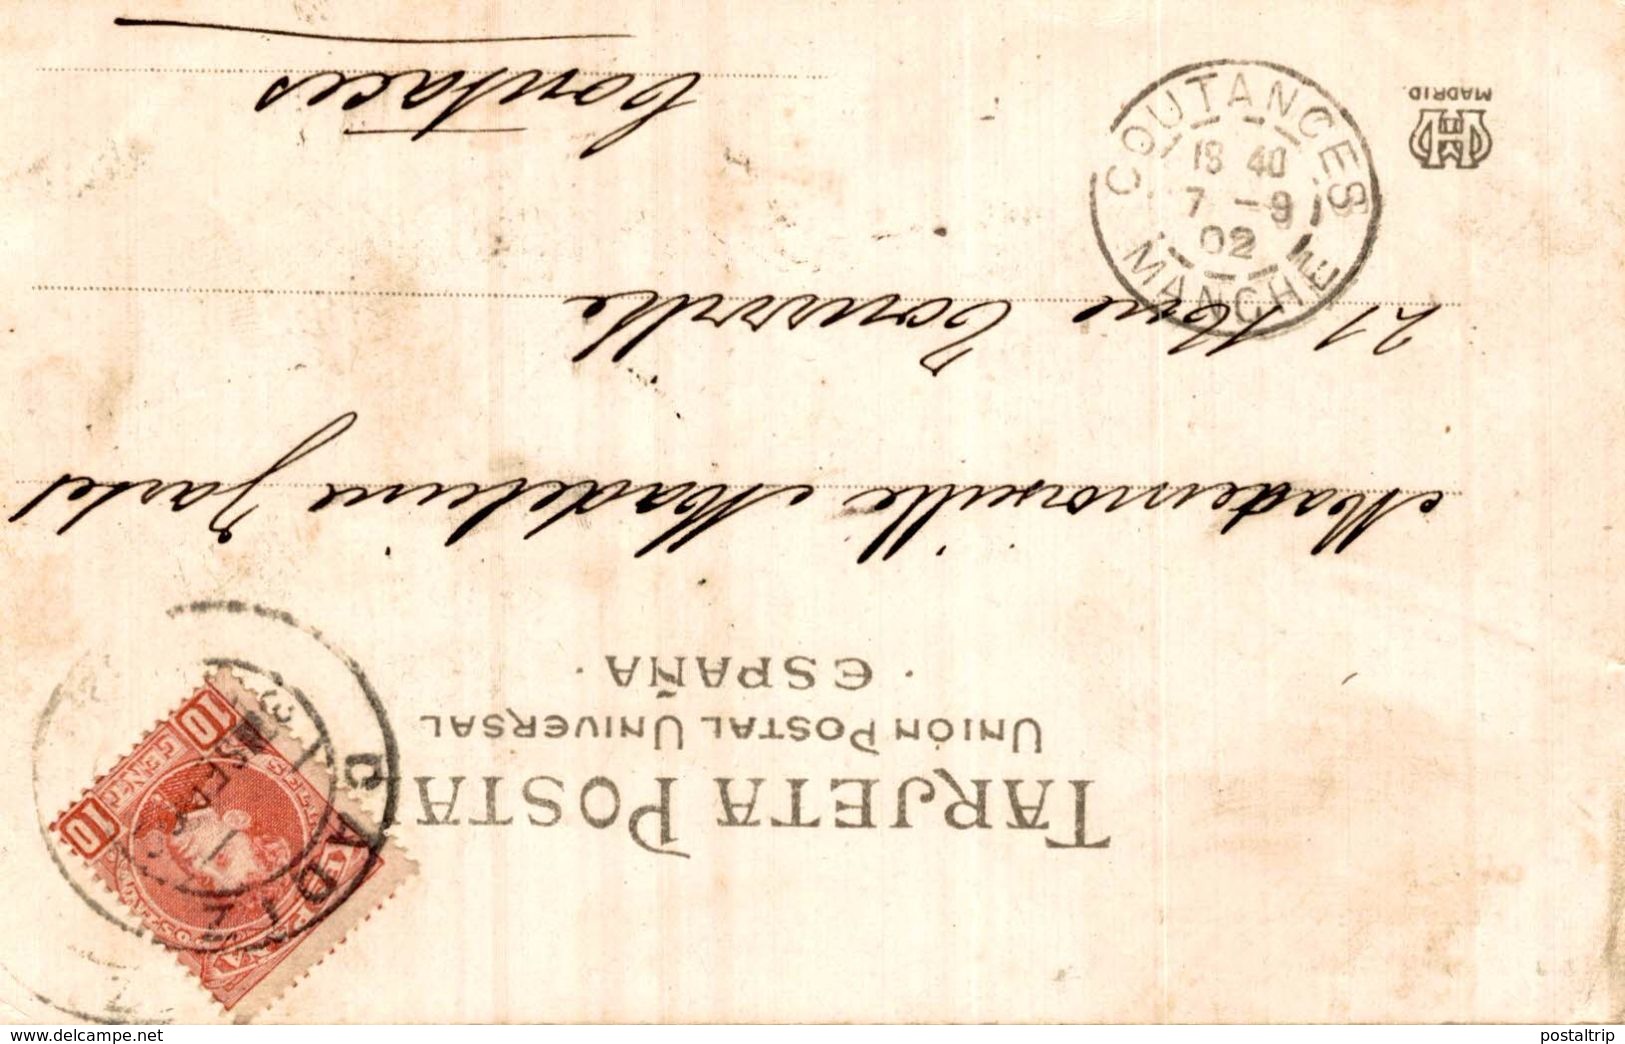 TARJETA POSTAL
UNIÓN POSTAL UNIVERSAL
· ESPAÑA ·
CADIZ
10
10
Mademoiselle Madeleine
21 Rue Tourville
Coutances
COUTANCES
18 40
7 - 9
02
MANCHE
MADRID.
www.delcampe.net
postaltrip